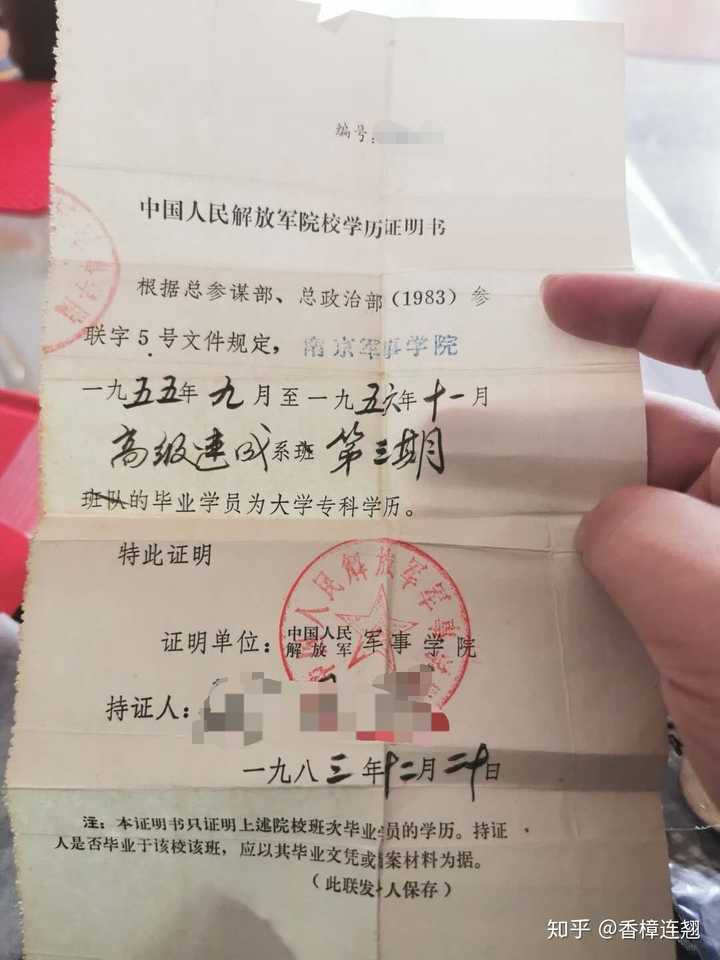 编号:
中国人民解放军院校学历证明书
根据总参谋部、总政治部(1983)参
联字5号文件规定，南京军事学院
一九五五年九月至一九五六年十一月
高级速成系班第三期
班队的毕业学员为大学专科学历。
特此证明
中国人民解放军军事学院
证明单位：中国人民解放军 军事学院
持证人：
一九八三年十二月二十日
注：本证明书只证明上述院校班次毕业学员的学历。持证
人是否毕业于该校该班，应以其毕业文凭或档案材料为据。
（此联发 人保存）
知乎 @香樟连翘